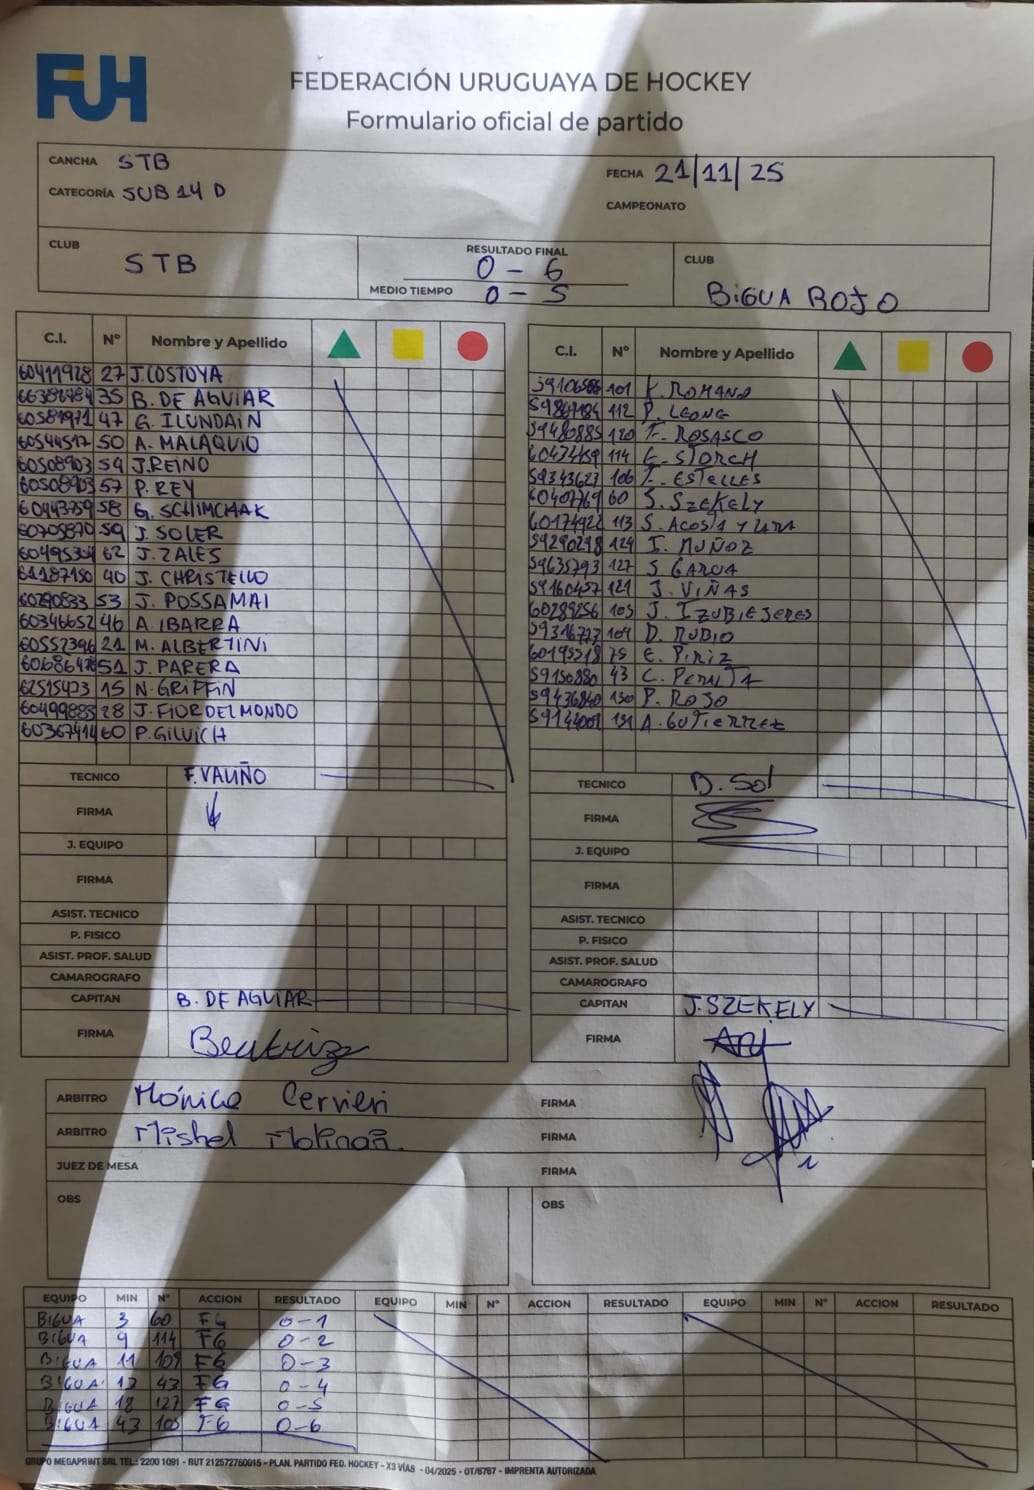 FUH
FEDERACIÓN URUGUAYA DE HOCKEY
Formulario oficial de partido
CANCHA STB
CATEGORÍA SUB 14 D
FECHA 21/11/25
CAMPEONATO
CLUB
STB
RESULTADO FINAL
0-6
MEDIO TIEMPO 0-5
CLUB
BIGUA ROJO
C.I. Nº Nombre y Apellido
60411928 27 J. COSTOYA
35 B. DE AGUIAR
60581971 47 G. ILUNDAIN
60544517 50 A. MALAQUIO
60508903 54 J. REINO
60508903 57 P. REY
60443759 58 G. SCHIMCHAK
59 J. SOLER
62 J. ZALES
61187150 40 J. CHRISTELLO
60290833 53 J. POSSAMAI
60346652 46 A. IBARRA
60557396 21 M. ALBERTINI
51 J. PARERA
62515423 15 N. GRIFFIN
60499883 28 J. FIORDELMONDO
60367414 60 P. GILVICH
TECNICO F. VALIÑO
FIRMA
J. EQUIPO
FIRMA
ASIST. TECNICO
P. FISICO
ASIST. PROF. SALUD
CAMAROGRAFO
CAPITAN B. DE AGUIAR
FIRMA Beatriz
C.I. Nº Nombre y Apellido
101 K. ROMANO
112 P. LEONE
59480885 120 F. ROSASCO
60474459 114 E. STORCH
59343623 106 ESTELLES
60407769 60 S. SZEKELY
60174922 113 S. ACOSTA Y LARA
59290298 124 I. MUÑOZ
59635793 127 S. GARCIA
59160457 121 J. VIÑAS
60289256 105 J. IZUBIEJERES
109 D. RUBIO
60195218 75 E. PIRIZ
59150880 43 C.
59436840 130 P. ROJO
59144001 131 A. GUTIERREZ
TECNICO D. Sol
FIRMA
J. EQUIPO
FIRMA
ASIST. TECNICO
P. FISICO
ASIST. PROF. SALUD
CAMAROGRAFO
CAPITAN J. SZEKELY
FIRMA
ARBITRO Mónica Cervieri FIRMA
ARBITRO Mishel FIRMA
JUEZ DE MESA FIRMA
OBS OBS
EQUIPO MIN Nº ACCION RESULTADO EQUIPO MIN Nº ACCION RESULTADO EQUIPO MIN Nº ACCION RESULTADO
BIGUA 3 60 FG 0-1
BIGUA 9 114 FG 0-2
BIGUA 11 109 FG 0-3
BIGUA 43 FG 0-4
BIGUA 18 127 FG 0-5
BIGUA 43 105 FG 0-6
GRUPO MEGAPRINT SRL TEL.: 2200 1091 - RUT 212572760015 - PLAN. PARTIDO FED. HOCKEY - X3 VÍAS - 04/2025 - OT/6767 - IMPRENTA AUTORIZADA